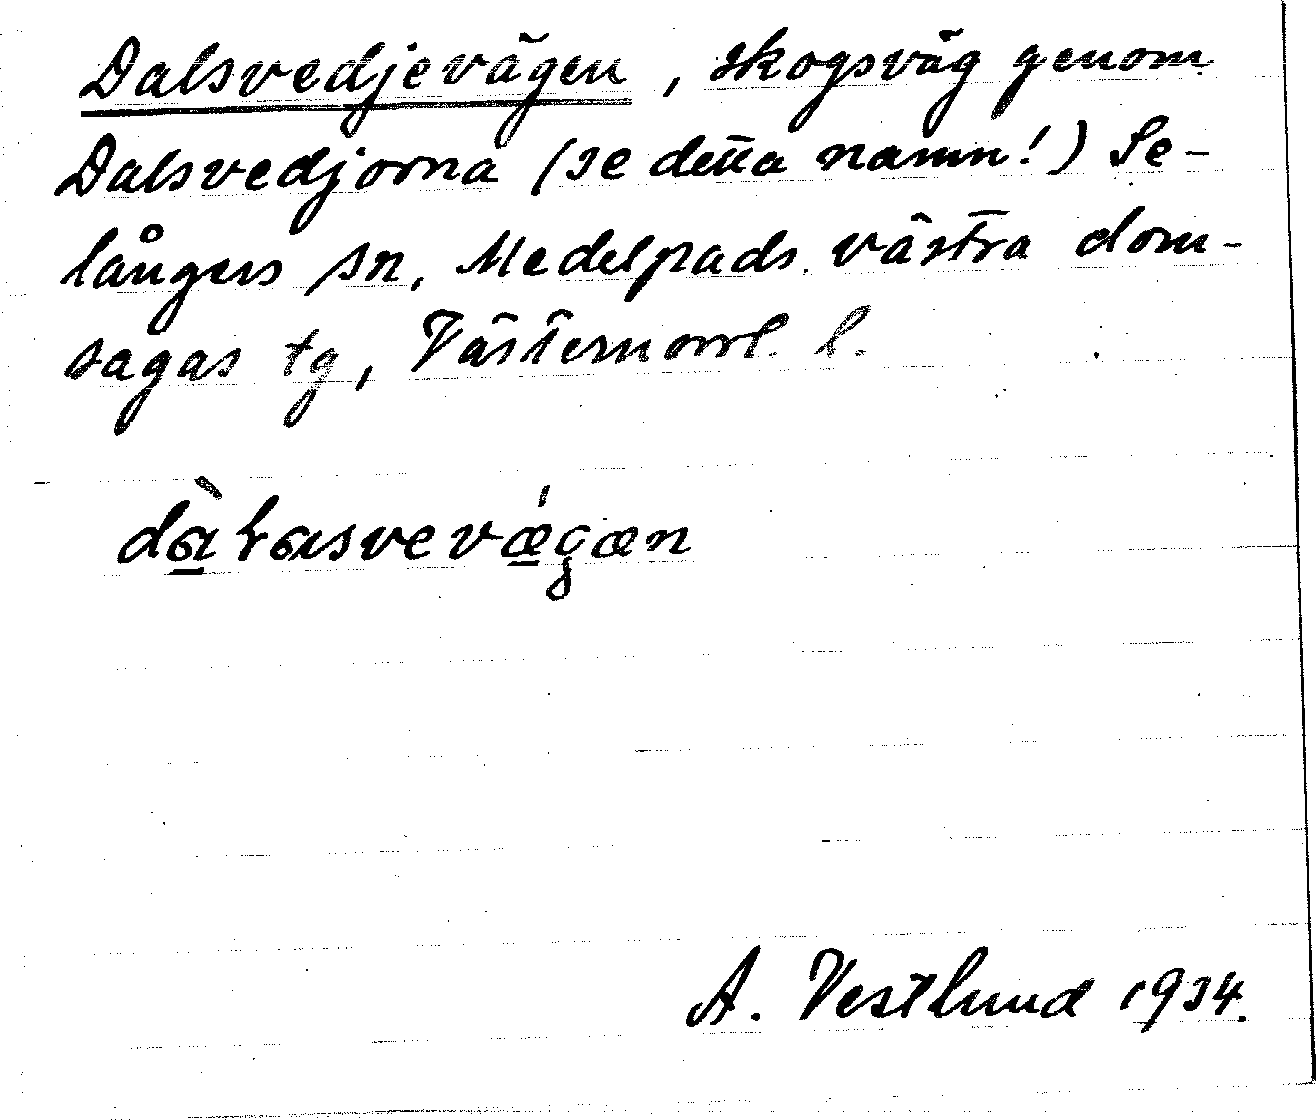 Dalsvedjevägen, skogsväg genom
Dalsvedjorna (se detta namn!) Se-
långers sn, Medelpads västra dom-
sagas tg, Västernorrl. l.
dàɽasvevǽgæn
A. Vestlund 1934.